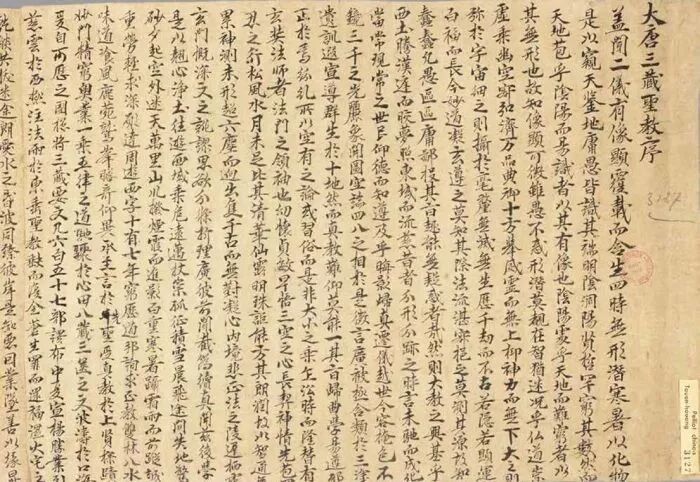 大唐三藏聖教序
蓋聞二儀有像顯覆載而含生四時無形潛寒暑以化物
是以窺天鑒地庸愚皆識其端明陰洞陽賢哲罕窮其數然而
天地苞乎陰陽而易識者以其有像也陰陽處乎天地而難窮者以
其無形也故知像顯可徵雖愚不惑形潛莫覩在智猶迷況乎仏道崇
虛乘幽空寂弘濟万品典御十方舉威靈而無上抑神力而無下大之則
弥於宇宙細之則攝於毫釐無滅無生歷千劫而不古若隱若顯運
百福而長今妙道凝玄遵之莫知其際法流湛寂挹之莫測其源故知
蠢蠢凡愚區區庸鄙投其旨趣能無疑惑者哉然則大教之興基乎
西土騰漢廷而皎夢照東域而流慈昔者分形分跡之時言未馳而成化
當常現常之世民仰德而知遵及乎晦影歸真遷儀越世金容掩色不
鏡三千之光麗象開圖空端四八之相於是微言廣被拯含類於三塗
遺訓遐宣導群生於十地然而真教難仰莫能一其旨歸曲學易遵邪
正於焉紛糺所以空有之論或習俗而是非大小之乘乍沿時而隆替有
玄奘法師者法門之領袖也幼懷貞敏早悟三空之心長契神情先苞四
忍之行松風水月未足比其清華仙露明珠詎能方其朗潤故以智通無
累神測未形超六塵而迥出隻千古而無對凝心內境悲正法之陵遲栖慮
玄門慨深文之訛謬思欲分條析理廣彼前聞截偽續真開茲後學
是以翹心淨土往遊西域乘危遠邁杖策孤征積雪晨飛途間失地驚
砂夕起空外迷天萬里山川撥煙霞而進影百重寒暑躡霜雨而前蹤誠
重勞輕求深願達周遊西宇十有七年窮歷道邦詢求正教雙林八水
味道飡風鹿菀鷲峯瞻奇仰異承至言於先聖受真教於上賢探賾
妙門精窮奧業一乘五律之道馳驟於心田八藏三篋之文波濤於口海
爰自所歷之國總將三藏要文凡六百五十七部譯布中夏宣揚勝業引
慈雲於西極注法雨於東垂聖教缺而復全蒼生罪而還福濕火宅之
乾焰共拔迷途朗愛水之昏波同臻彼岸是知惡因業墜善以緣昇
3127
Pelliot chinois
Touen-houang
3127